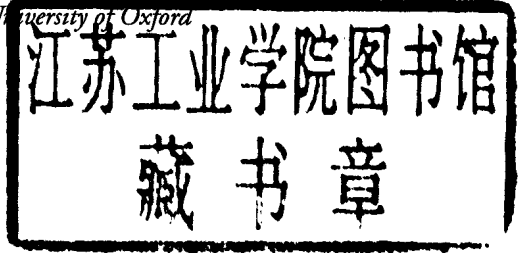 University of Oxford
江苏工业学院图书馆
藏书章